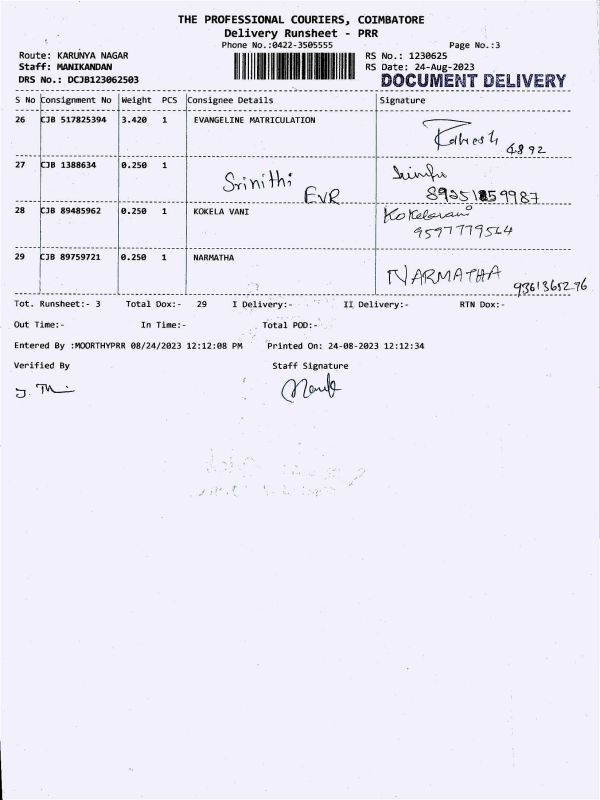 THE PROFESSIONAL COURIERS, COIMBATORE
Delivery Runsheet - PRR
Phone No.:0422-3505555
Page No.:3
Route: KARUNYA NAGAR
RS No.: 1230625
Staff: MANIKANDAN
RS Date: 24-Aug-2023
DRS No.: DCJB123062503
DOCUMENT DELIVERY
S No Consignment No Weight PCS Consignee Details Signature
26 CJB 517825394 3.420 1 EVANGELINE MATRICULATION
4892
27 CJB 1388634 0.250 1
Srinithi
EVR
28 CJB 89485962 0.250 1 KOKELA VANI Kokelavani
9597779564
29 CJB 89759721 0.250 1 NARMATHA
NARMATHA
9361365296
Tot. Runsheet:- 3 Total Dox:- 29 I Delivery:- II Delivery:- RTN Dox:-
Out Time:- In Time:- Total POD:-
Entered By :MOORTHYPRR 08/24/2023 12:12:08 PM Printed On: 24-08-2023 12:12:34
Verified By Staff Signature